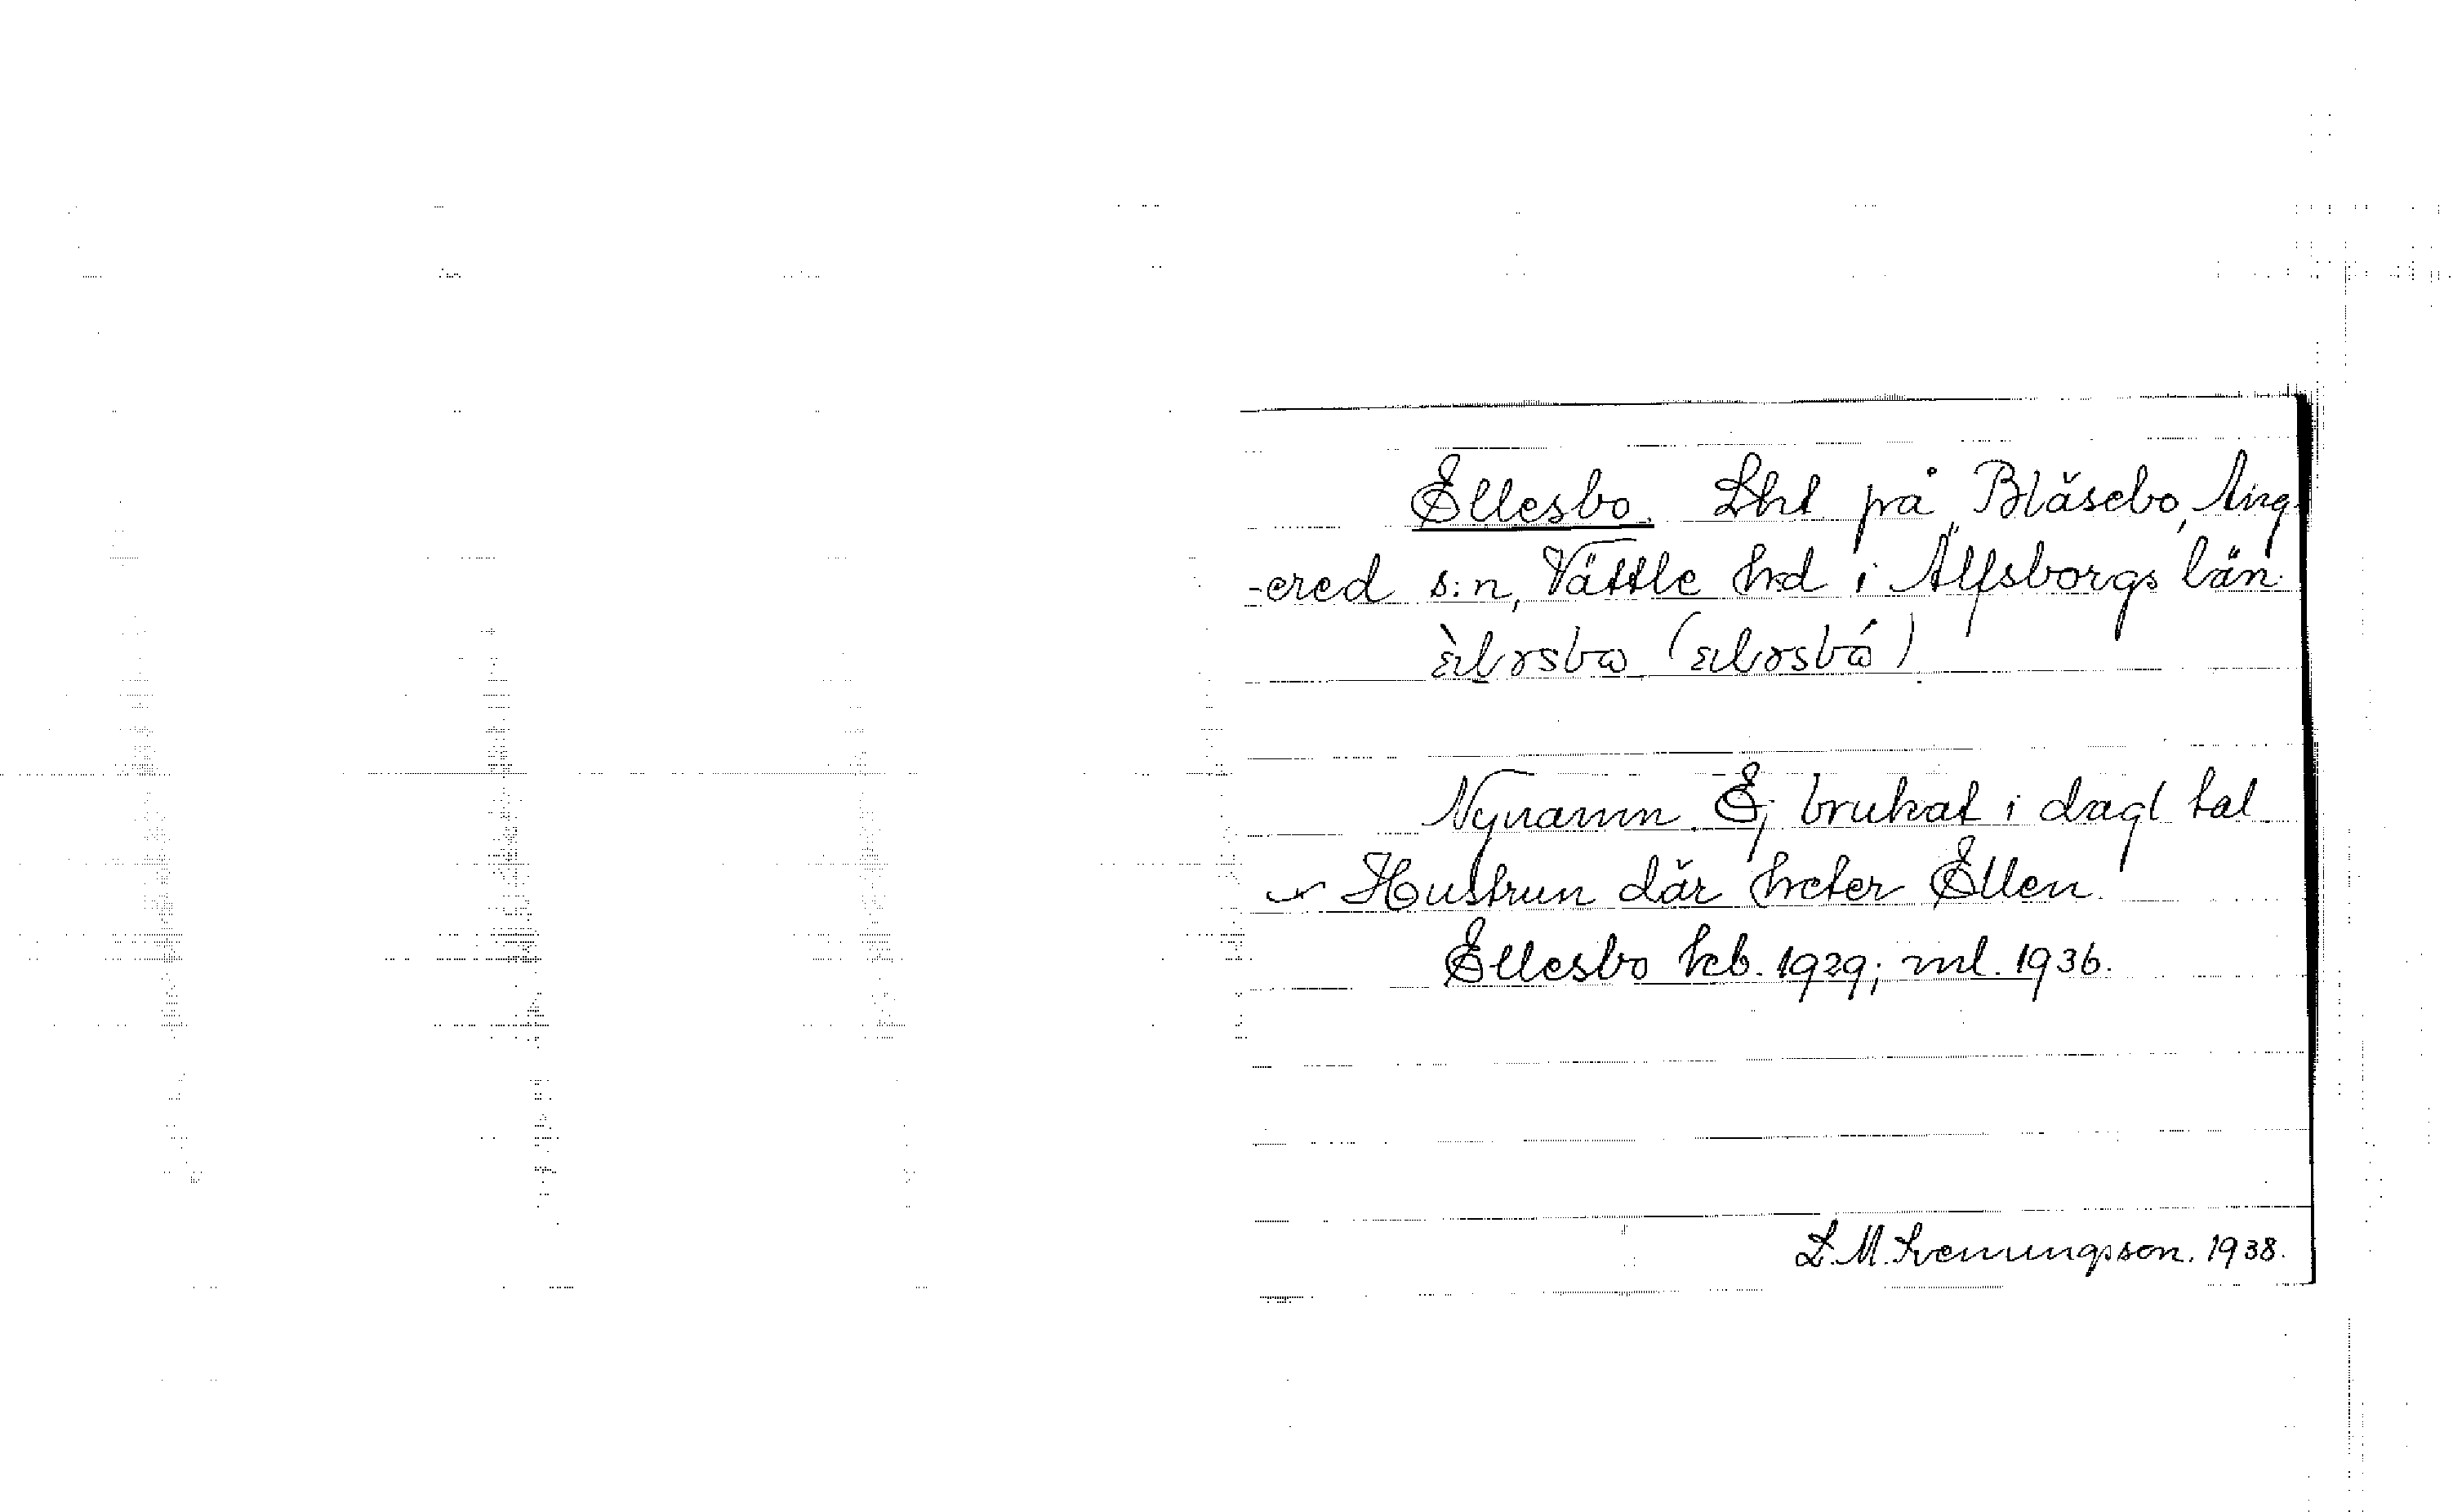 Ellesbo. Lht på Blåsebo, Ang-
-ered s:n, Vättle hd i Älfsborgs län.
Nynamn. Ej brukat i dagl tal
Hustrun där heter Ellen.
Ellesbo kb. 1929; ml. 1936.
L. M. Svenungsson. 1938.